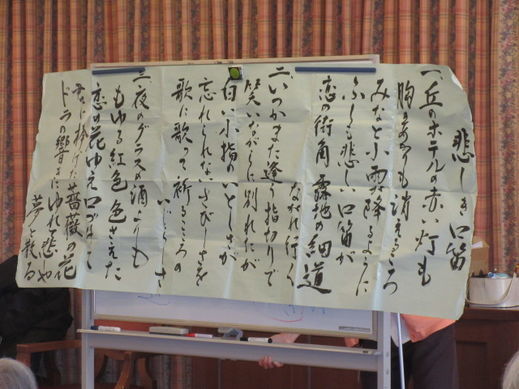 悲しき口笛
一、丘のホテルの赤い灯も
胸のあかりも消えるころ
みなと小雨が降るように
ふしも悲しい口笛が
恋の街角 露地の細道
ながれ行く
二、いつかまた逢う指切りで
笑いながらに別れたが
白い小指のいとしさが
忘れられないさびしさを
歌に歌って祈るこころの
いじらしさ
三、夜のグラスの酒よりも
もゆる紅色色さえた
恋の花ゆえ口づけて
君に捧げた薔薇の花
ドラの響きにゆれて悲しや
夢と散る